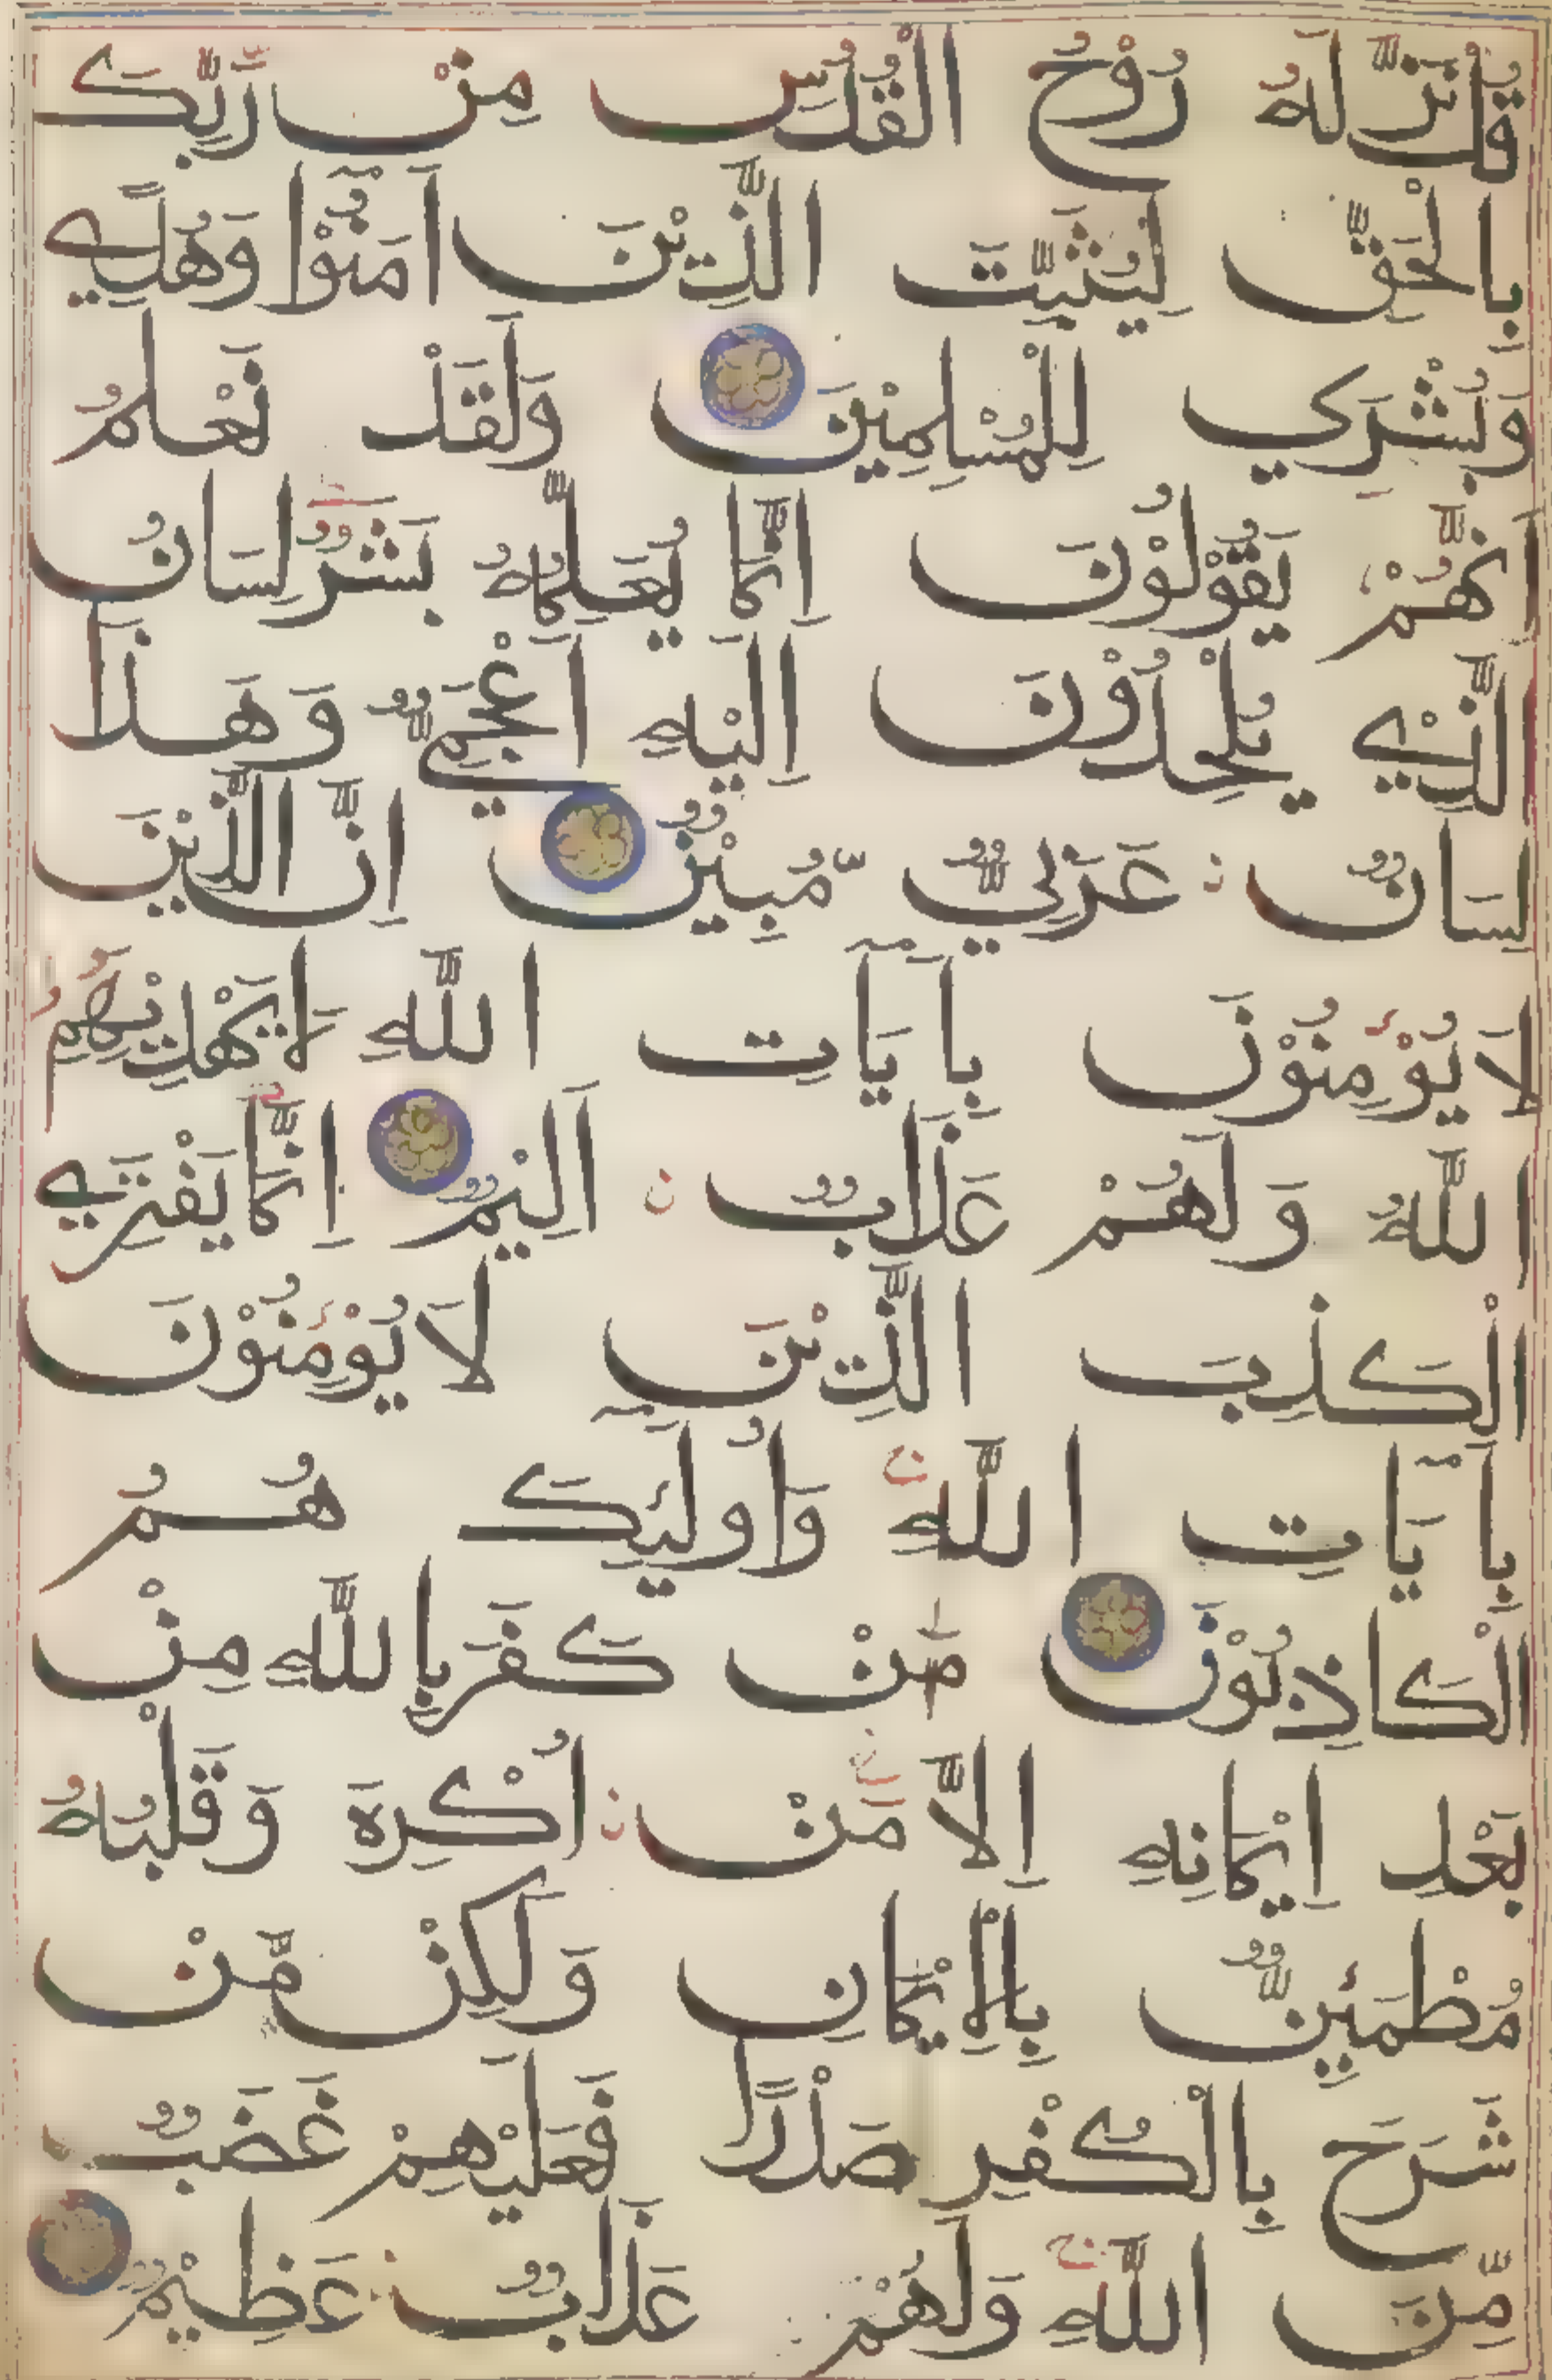 قُلْ نَزَّلَهُ رُوْحُ الْقُدُسِ مِنْ رَّبِّكَ
بِالْحَقِّ لِيُثَبِّتَ الَّذِيْنَ اٰمَنُوْا وَهُدًي
وَبُشْرٰي لِلْمُسْلِمِيْنَ وَلَقَدْ نَعْلَمُ
اَنَّهُمْ يَقُوْلُوْنَ اِنَّمَا يُعَلِّمُهُ بَشَرٌ لِسَانُ
الَّذِيْ يُلْحِدُوْنَ اِلَيْهِ اَعْجَمِيٌّ وَهَذَا
لِسَانٌ عَرَبِيٌّ مُّبِيْنٌ اِنَّ الَّذِيْنَ
لَا يُوْمِنُوْنَ بِاٰيَاتِ اللّٰهِ لَا يَهْدِيْهِمُ
اللّٰهُ وَلَهُمْ عَذَابٌ اَلِيْمٌ اِنَّمَا يَفْتَرِي
الْكَذِبَ الَّذِيْنَ لَا يُوْمِنُوْنَ
بِاٰيَاتِ اللّٰهِ وَاُولٰٓئِكَ هُمُ
الْكَاذِبُوْنَ مَنْ كَفَرَ بِاللّٰهِ مِنْ
بَعْدِ اِيْمَانِهِ اِلَّا مَنْ اُكْرِهَ وَقَلْبُهُ
مُطْمَئِنٌّ بِالْاِيْمَانِ وَلَكِنْ مَّنْ
شَرَحَ بِالْكُفْرِ صَدْرًا فَعَلَيْهِمْ غَضَبٌ
مِّنَ اللّٰهِ وَلَهُمْ عَذَابٌ عَظِيْمٌ